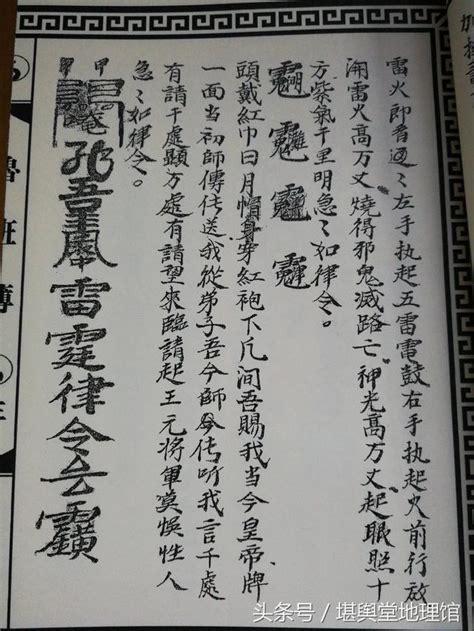 雷火即看過〻左手执起五雷電鼓右手执起火前行放
洞雷火高万丈燒得邪鬼滅路亡神光高万丈起眼照十
方紫氣千里明急〻如律令。
頭戴紅巾日月帽身穿紅袍下凡间吾賜我当今皇帝牌
一面当初師傳伝送我從弟子吾今師令伝听我言千處
有請千處顯方處有請望來臨請起王元將軍莫悞性人
急〻如律令。
吾 雷霆律令
魯班
头条号／堪舆堂地理馆